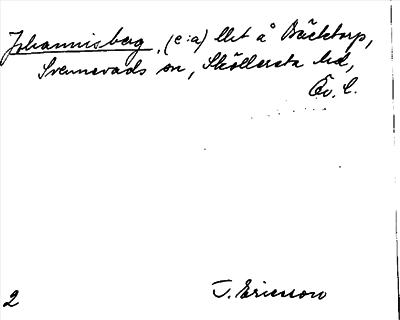 Johannisberg, (e:a) llet å Bäcktorp,
Svennevads sn, Sköllersta hd,
Ör. l.
J. Ericsson
2